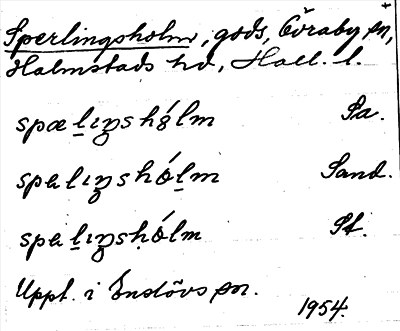 Sperlingsholm, gods, Övraby sn,
Halmstads hd, Hall. l.
spælıŋshólm Sa.
spelıŋshólm Sand.
spelıŋshólm St.
Uppt. i Enslövs sn.
1954.